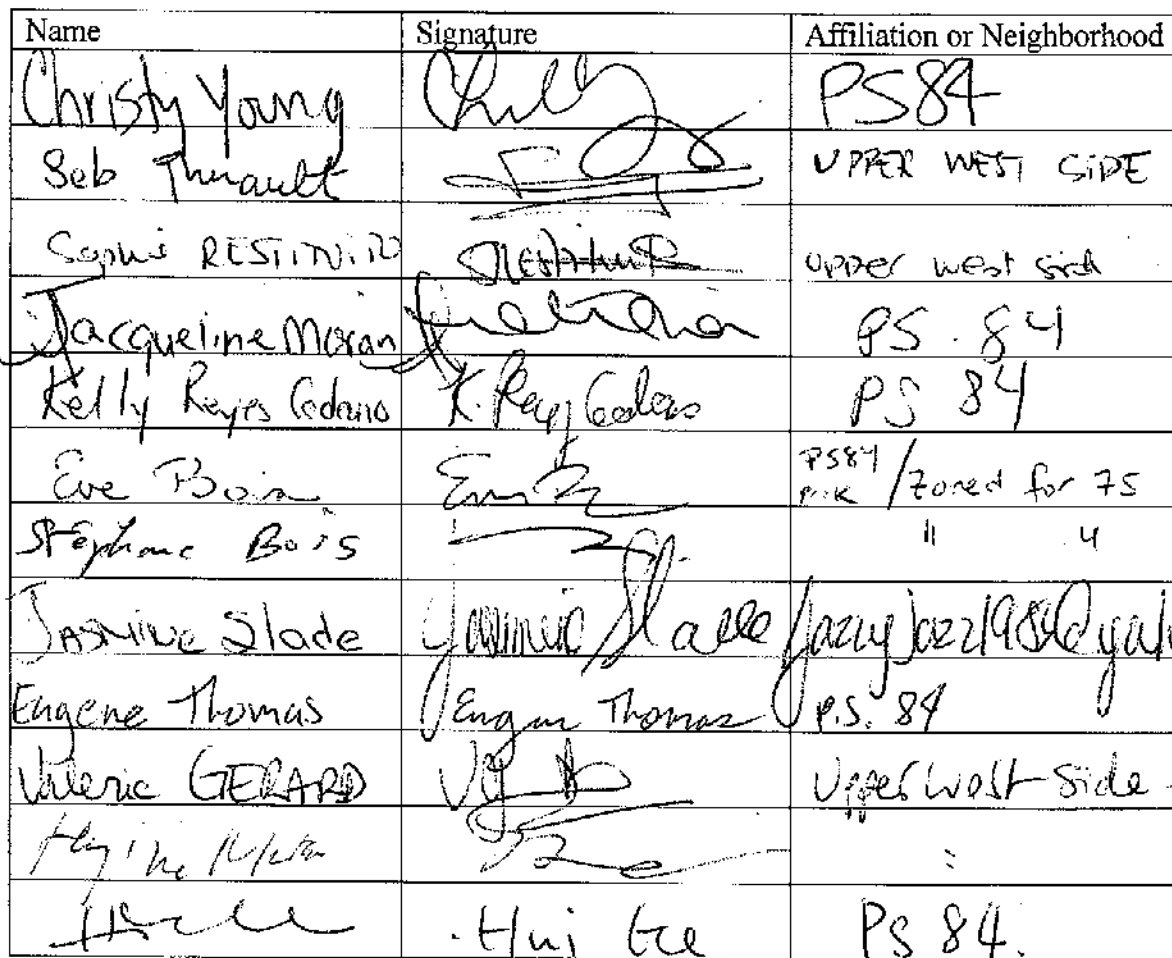 Name Signature Affiliation or Neighborhood
Christy Young PS84
Seb Theriault UPPER WEST SIDE
Sophie RESTITUITO upper west side
Jacqueline Moran PS. 84
Kelly Reyes Cedano K. Reyes Cedano PS 84
Eve Bois PS84 Pre-K / zoned for 75
Stéphane Bois " "
JASMINE Slade Jasmine Slade jazzyjazz1984@yaho
Eugene Thomas Eugene Thomas P.S. 84
Valerie GERARD Upper West Side
Hui PS 84.